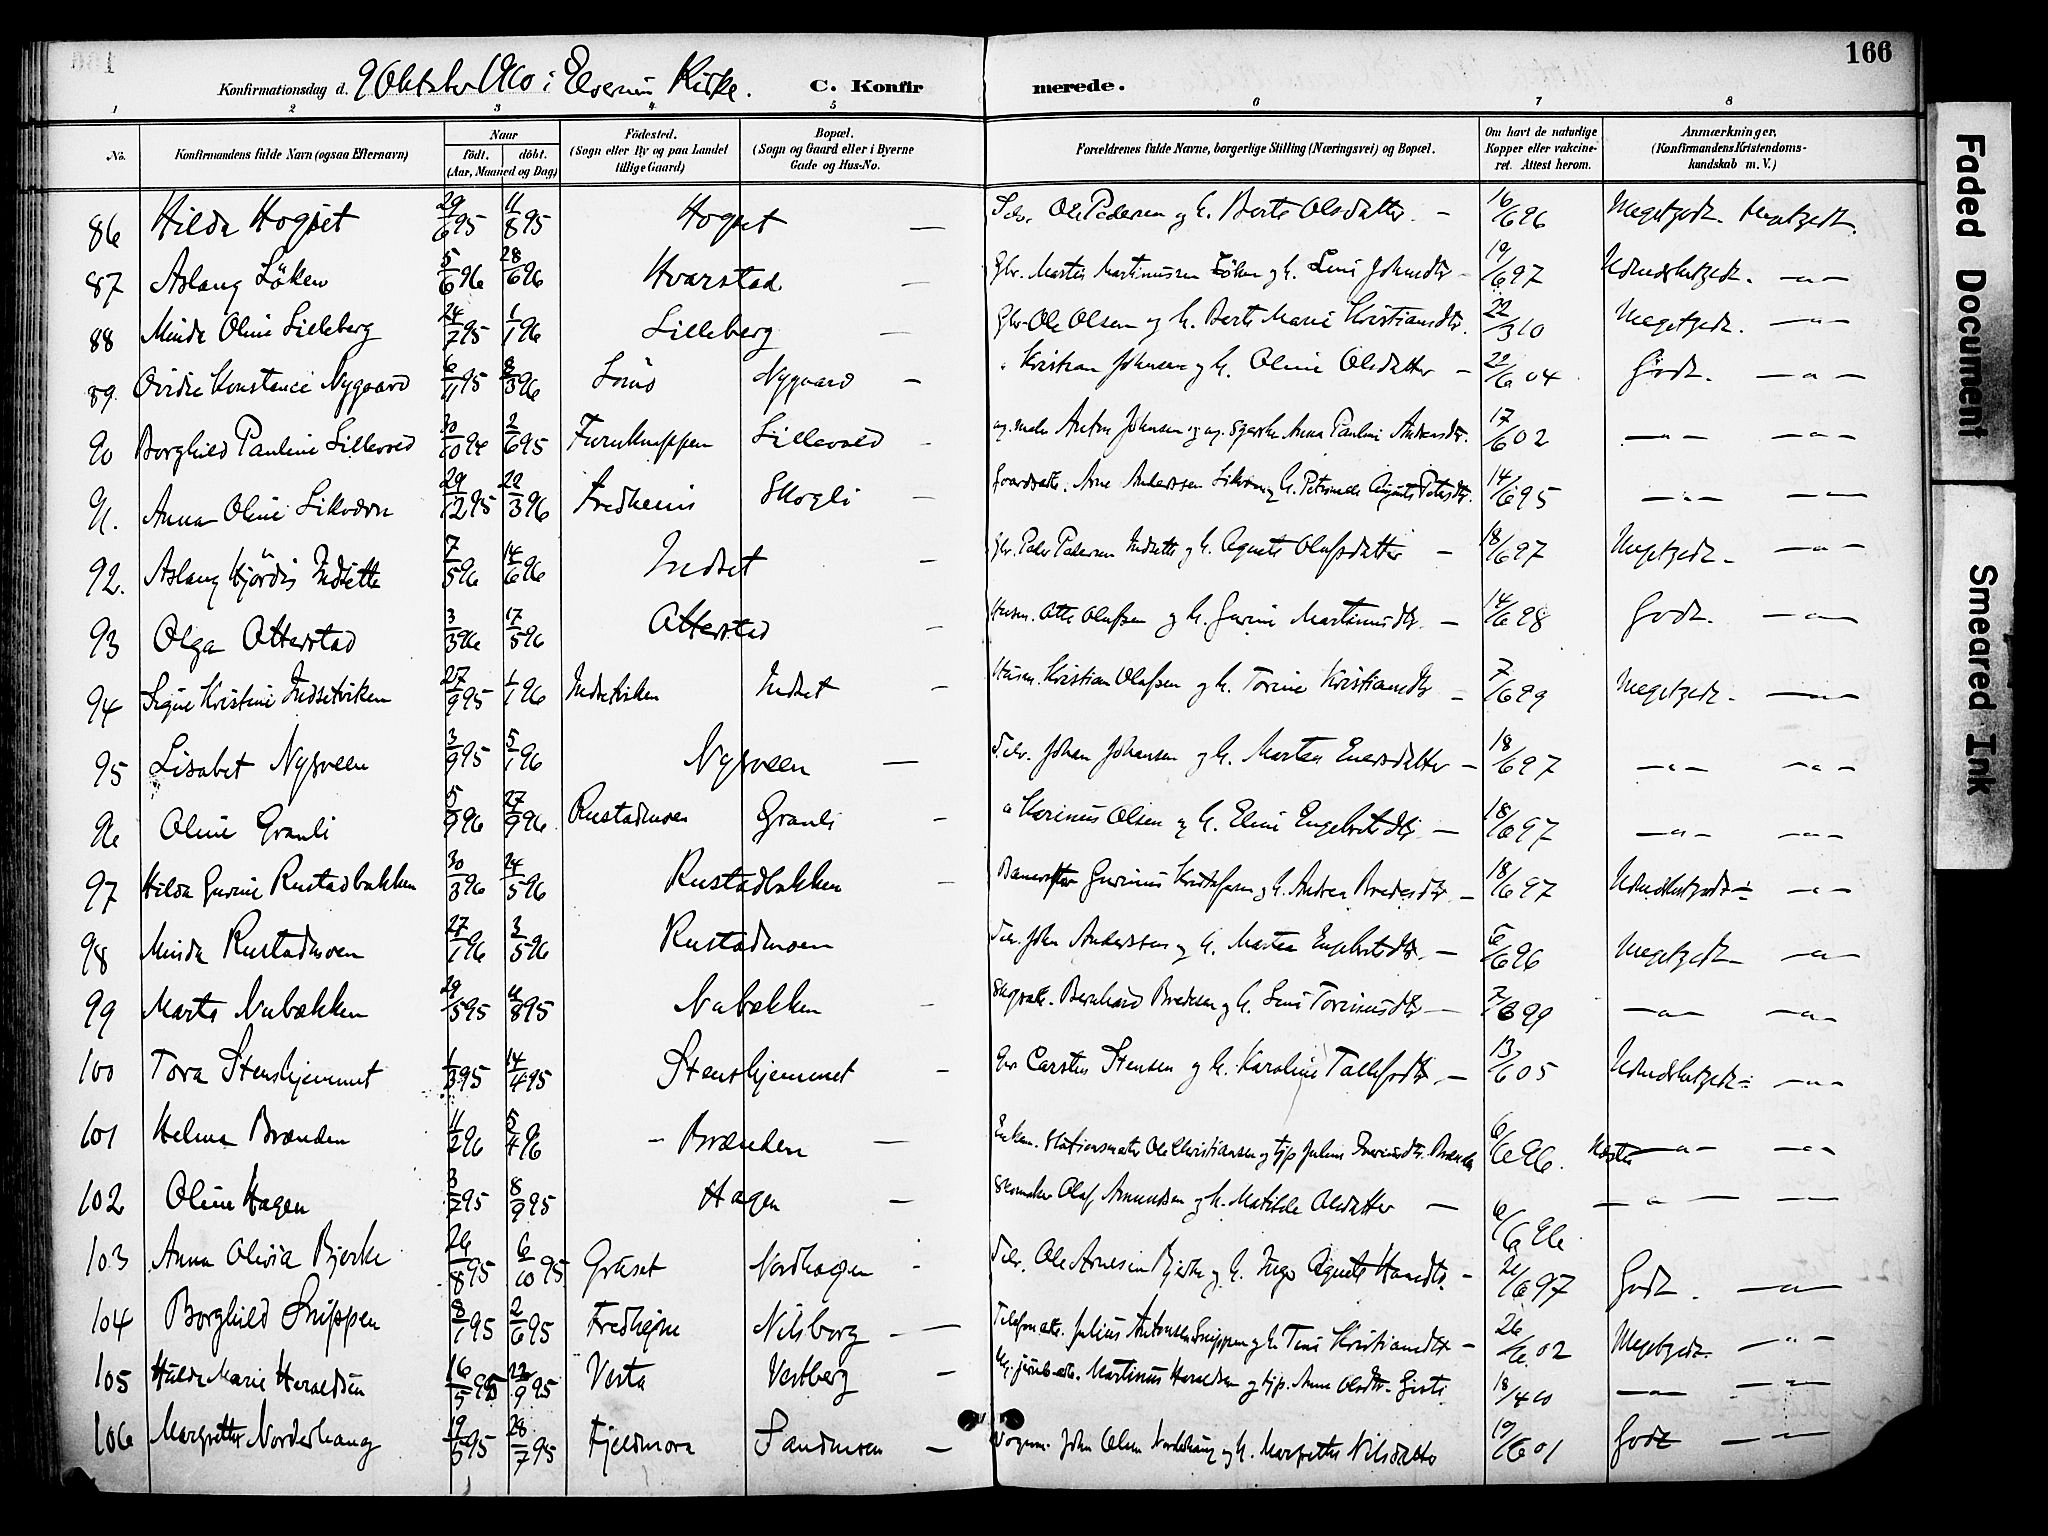 166
Konfirmationsdag d. 9 Oktober 1910 i Elverum Kirke. C. Konfirmerede.
1 2 3 4 5 6 7 8
No. Konfirmandens fulde Navn (ogsaa Efternavn) Naar födt. döbt. (Aar, Maaned og Dag) Födested. (Sogn eller By og paa Landet tillige Gaard) Bopæl. (Sogn og Gaard eller i Byerne Gade og Hus-No. Forældrenes fulde Navne, borgerlige Stilling (Næringsvei) og Bopæl. Om havt de naturlige Kopper eller vakcineret. Attest herom. Anmærkninger, (Konfirmandens Kristendomskundskab m. V.)
86 Hilda Hogset 29/6 95 11/8 95 Hogset — Ole Pedersen og h. Berte Olsdatter. — 16/6 96 Megetgodt. Megetgodt.
87 Aslaug Löken 5/6 96 28/6 96 Hvarstad — Gbr. Martin Martinussen Löken og h. Lini Johnsdtr — 19/6 97 Udmerketgodt. — " —
88 Minda Oline Lilleberg 24/7 95 1/1 96 Lilleberg — Gbr. Ole Olsen og h. Berte Marie Kristiansdtr. 22/3 10 Megetgodt. — " —
89. Ovidie Konstance Nygaard 6/11 95 8/3 96 Nygaard — " Kristian Johnsen og h. Oline Olsdatter — 22/6 04 Godt. — " —
90 Borghild Pauline Lillevold 30/10 94 2/6 95 Furuknappen Lillevold — Anton Johnsen og Anna Pauline Andersdtr. 17/6 02 — " — — " —
91. Anna Oline Likvern 29/12 95 22/3 96 Fredheim Skogli — Arne Anderssen Likvern og h. Petrine Augusta Petersdtr. 14/6 95 — " — — " —
92. Aslaug Hjördis Indsette 7/5 96 14/6 96 Indset — Gbr. Peder Pedersen Indsette og h. Agnete Olafsdatter — 18/6 97 Megetgodt. — " —
93 Olga Atterstad 3/3 96 17/5 96 Atterstad — Husm. Otto Olafsen og h. Gurine Martinusdtr. — 14/6 98 Godt. — " —
94 Signe Kristine Indsetviken 27/9 95 1/1 96 Indsetviken Indset — Husm. Kristian Olafsen og h. Torine Kristiansdtr — 7/6 99 Megetgodt. — " —
95 Lisabet Nysveen 3/9 95 5/1 96 Nysveen — Johan Johansen og h. Martea Enersdatter — 18/6 97 — " — — " —
96 Oline Granli 5/9 96 27/9 96 Rustadmoen Granli — " Karinus Olsen og h. Eline Engebretsdtr. — 18/6 97 — " — — " —
97 Hilda Gurine Rustadbakken 30/3 96 24/5 96 Rustadbakken — Gurinus Kristofersen og h. Andrea Bredesdtr. — 18/6 97 Udmerketgodt — " —
98 Minda Rustadmoen 27/1 96 3/5 96 Rustadmoen John Anderssen og h. Martea Engebretsdtr. — 6/6 96 Megetgodt — " —
99 Marta Nabækken 29/5 95 11/8 95 Nabækken — Bernhard Bredesen og h. Lini Torinusdtr — 7/6 99 — " — — " —
100 Tora Stenshjemmet 1/3 95 14/4 95 Stenshjemmet — Gbr Carsten Stensen og h. Karoline Tollefsdtr. — 13/6 05 Udmerketgodt — " —
101 Helma Brænden 11/2 96 5/4 96 — Brænden — Enkem. Stationsmester Ole Christiansen og tjp. Juline Iverinusdtr. Brænden 6/6 96. — " — — " —
102 Oline Hagen 3/7 95 8/9 95 Hagen — Skomaker Olaf Amundsen og h. Matilde Olsdatter — 6/6 96 — " — — " —
103 Anna Olivia Bjerke 26/8 95 6/10 95 Gröset Nordhagen Ole Arnesen Bjerke og h. Inga Agnete Hansdtr. — 21/6 97 Godt. — " —
104 Borghild Snippen 8/1 95 2/6 95 Fredhejm Nilsborg — Telefonarb. Julius Antonsen Snippen og h. Tina Kristiansdtr. — 26/6 02 Megetgodt. — " —
105 Hulda Marie Haraldsen 16/5 95 22/9 95 Vesta Vestberg — Martinus Haraldsen og tjp. Anne Olsdtr. 18/4 10 — " — — " —
106 Margrethe Norderhaug 19/5 95 28/7 95 Fjeldmora Sandmoen — Vognm. John Olsen Norderhaug og h. Margrethe Nilsdatter 19/6 01 Godt — " —
Faded Document
Smeared Ink